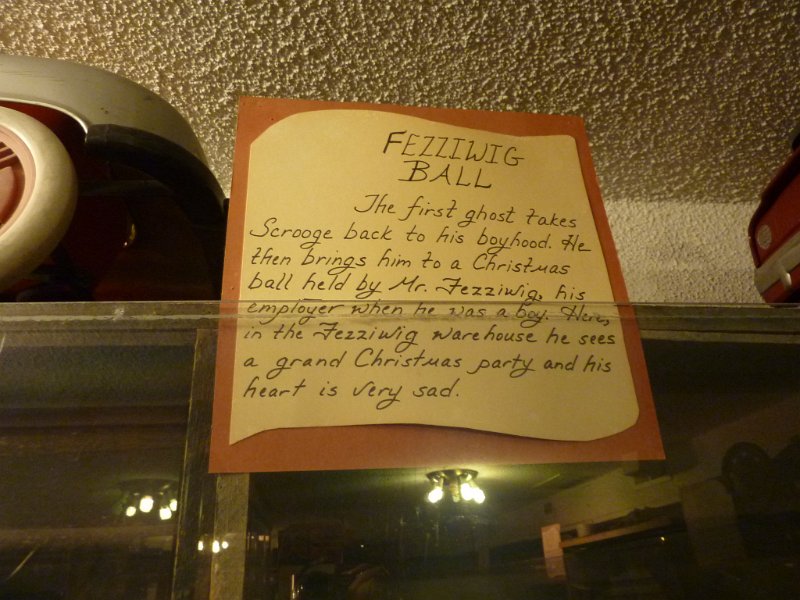 FEZZIWIG
BALL
The first ghost takes
Scrooge back to his boyhood. He
then brings him to a Christmas
ball held by Mr. Fezziwig, his
employer when he was a boy. Here,
in the Fezziwig warehouse he sees
a grand Christmas party and his
heart is very sad.